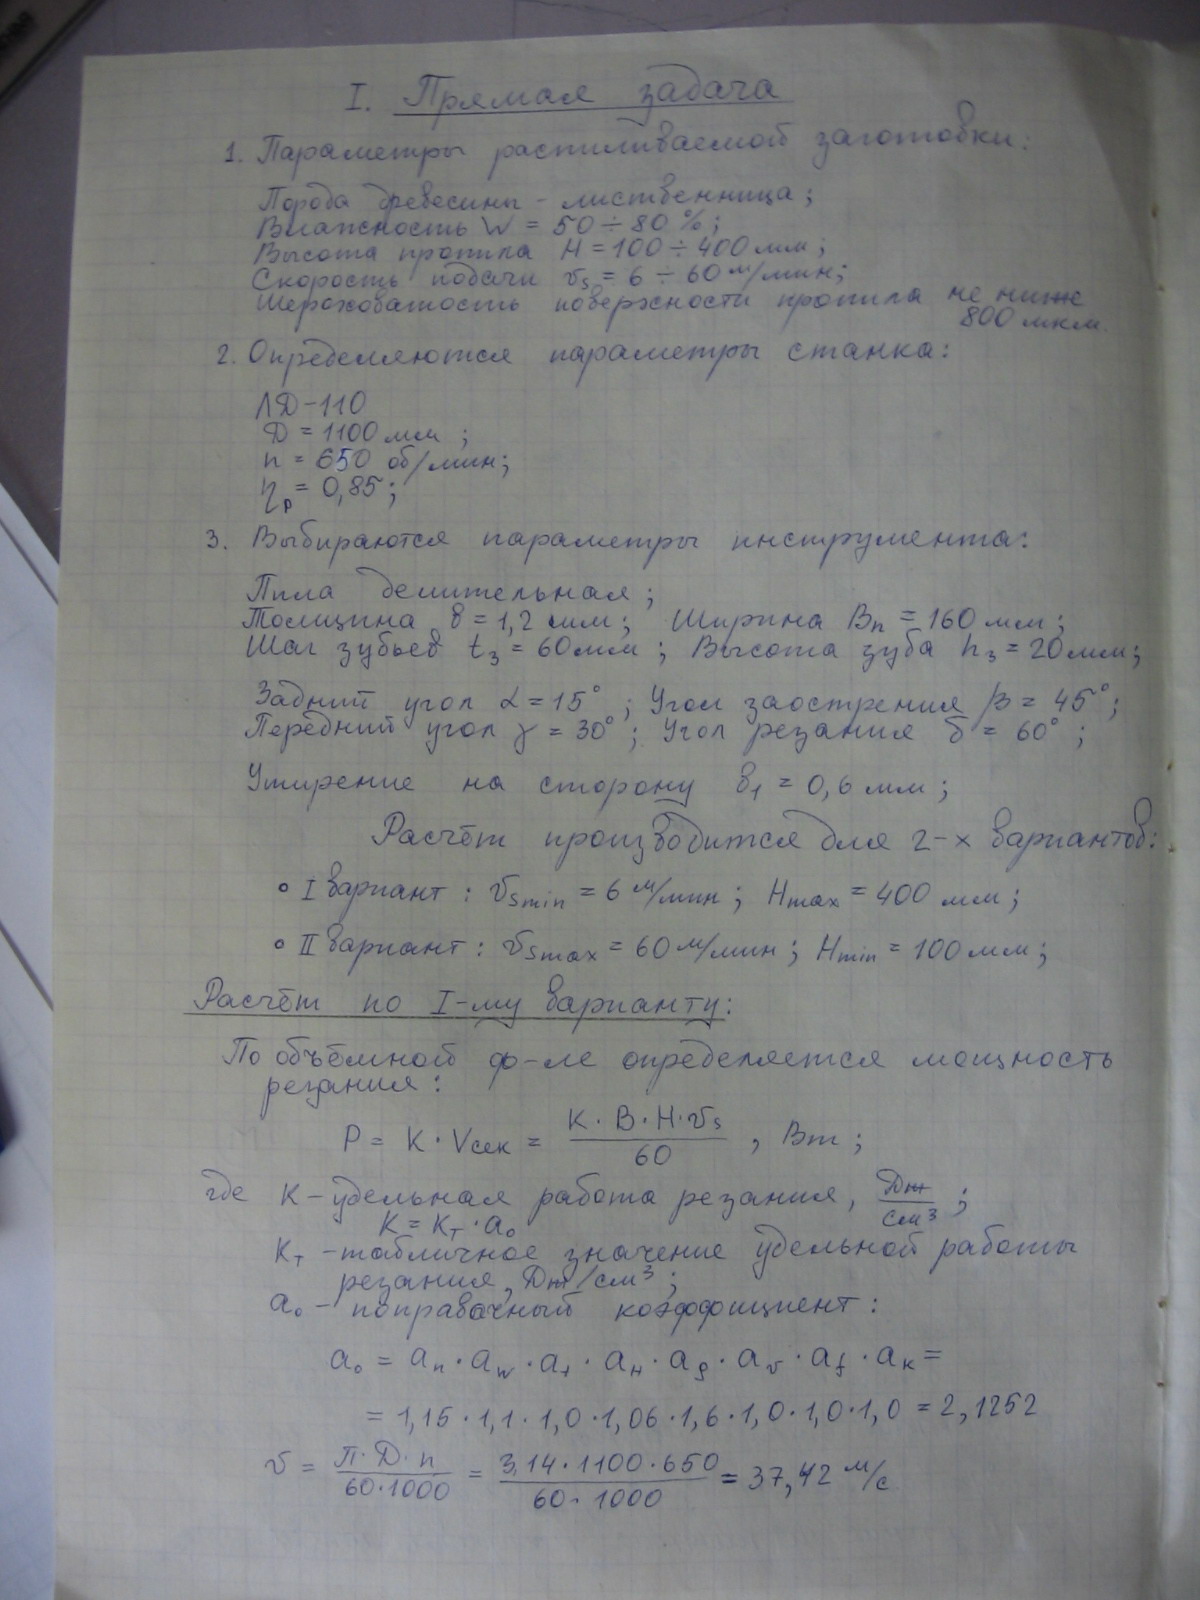 I. Прямая задача
1. Параметры распиливаемой заготовки:
Порода древесины - лиственница;
Влажность W = 50 ÷ 80 %;
Высота пропила H = 100 ÷ 400 мм;
Скорость подачи vs = 6 ÷ 60 м/мин;
Шероховатость поверхности пропила не ниже
800 мкм.
2. Определяются параметры станка:
ЛД-110
D = 1100 мм;
n = 650 об/мин;
ηр = 0,85;
3. Выбираются параметры инструмента:
Пила делительная;
Толщина в = 1,2 мм; Ширина Вп = 160 мм;
Шаг зубьев tз = 60 мм; Высота зуба hз = 20 мм;
Задний угол α = 15°; Угол заострения β = 45°;
Передний угол γ = 30°; Угол резания δ = 60°;
Уширение на сторону в1 = 0,6 мм;
Расчёт производится для 2-х вариантов:
° I вариант: vs min = 6 м/мин; Hmax = 400 мм;
° II вариант: vs max = 60 м/мин; Hmin = 100 мм;
Расчёт по I-му варианту:
По объёмной ф-ле определяется мощность
резания:
P = K · Vсек = K · B · H · vs / 60 , Вт;
где K - удельная работа резания, Дж/см³;
K = Kт · a₀
Kт - табличное значение удельной работы
резания, Дж/см³;
a₀ - поправочный коэффициент:
a₀ = aп · aw · at · aн · aρ · av · af · aк =
= 1,15 · 1,1 · 1,0 · 1,06 · 1,6 · 1,0 · 1,0 · 1,0 = 2,1252
v = П · D · n / 60 · 1000 = 3,14 · 1100 · 650 / 60 · 1000 = 37,42 м/с